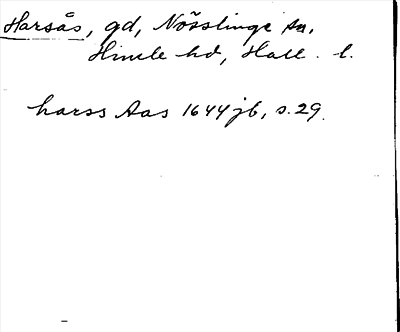 Harsås, gd, Nösslinge sn,
Himle hd, Hall. l.
harss Aas 1644 jb, s. 29.